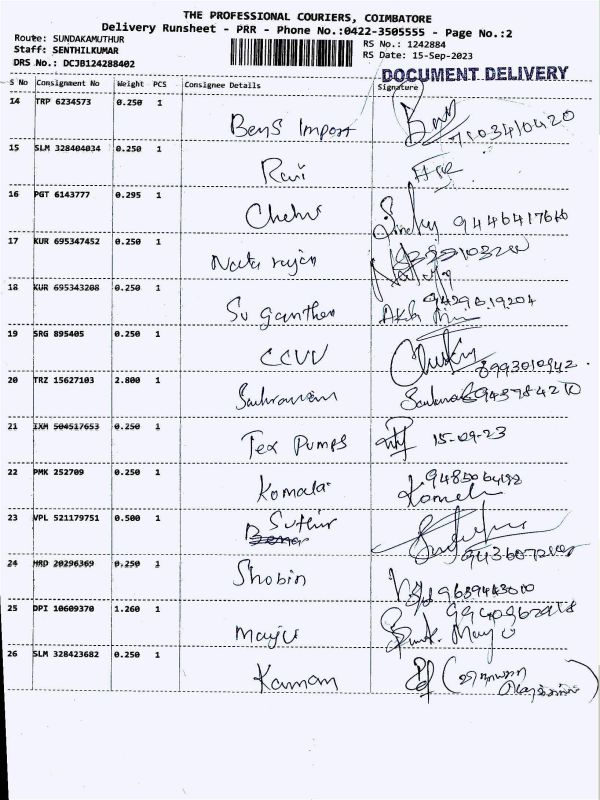 THE PROFESSIONAL COURIERS, COIMBATORE
Delivery Runsheet - PRR - Phone No.:0422-3505555 - Page No.:2
Route: SUNDAKAMUTHUR
RS No.: 1242884
Staff: SENTHILKUMAR
RS Date: 15-Sep-2023
DRS No.: DCJB124288402
DOCUMENT DELIVERY
S No Consignment No Weight PCS Consignee Details Signature
14 TRP 6234573 0.250 1
Bens Import
15 SLM 328404034 0.250 1
Ravi
16 PGT 6143777 0.295 1
9446417610
17 KUR 695347452 0.250 1
Natarajan
18 KUR 695343208 0.250 1
9429619204
19 SRG 895405 0.250 1
CCVV
8993010942
20 TRZ 15627103 2.800 1
21 IXM 504517653 0.250 1
Tex Pumps 15-09-23
22 PMK 252709 0.250 1
Komala
23 VPL 521179751 0.500 1
Sudhir
24 HRD 20296369 0.250 1
Shobin 9639443010
25 DPI 10609370 1.260 1
Manju
26 SLM 328423682 0.250 1
Kannan